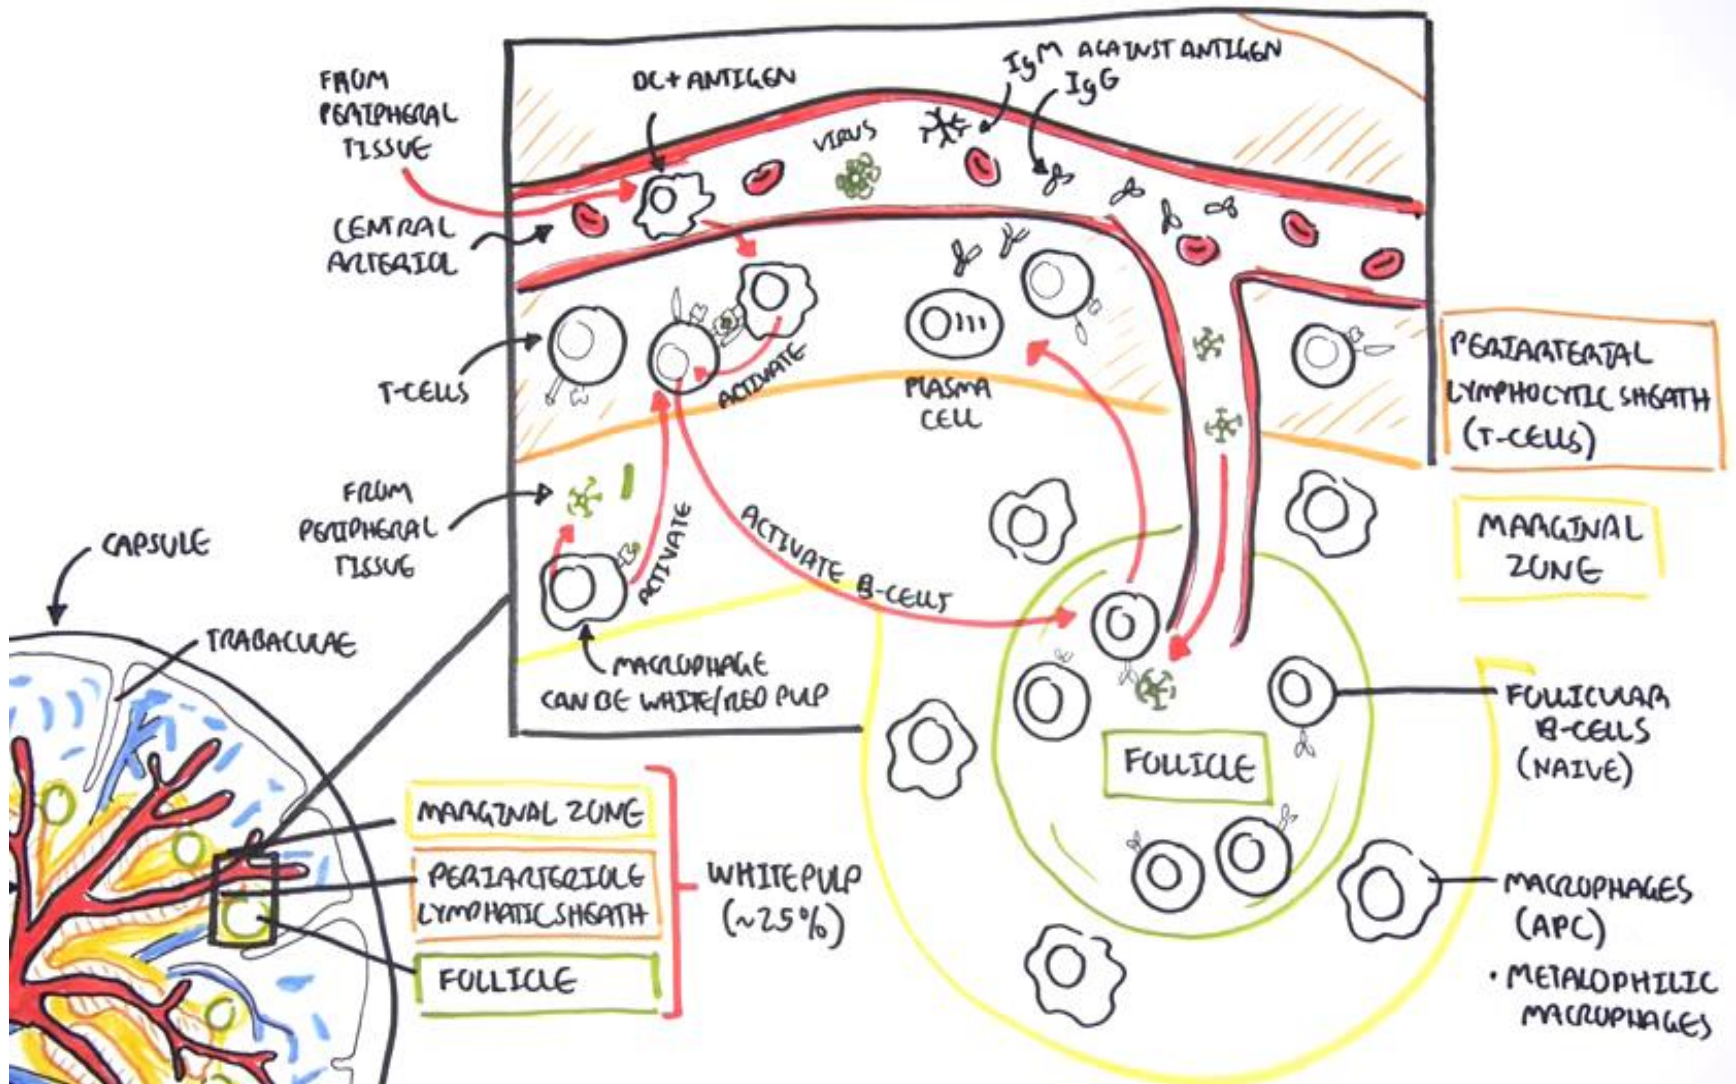 FROM
PERIPHERAL
TISSUE
DC+ ANTIGEN
IgM AGAINST ANTIGEN
IgG
VIRUS
CENTRAL
ARTERIOL
T-CELLS
ACTIVATE
PLASMA
CELL
PERIARTERIAL
LYMPHOCYTIC SHEATH
(T-CELLS)
FROM
PERIPHERAL
TISSUE
ACTIVATE
ACTIVATE B-CELLS
MARGINAL
ZONE
CAPSULE
TRABACULAE
MACROPHAGE
CAN BE WHITE/RED PULP
FOLLICULAR
B-CELLS
(NAIVE)
FOLLICLE
MARGINAL ZONE
PERIARTERIOLE
LYMPHATIC SHEATH
FOLLICLE
WHITE PULP
(~25%)
MACROPHAGES
(APC)
• METALOPHILIC
MACROPHAGES